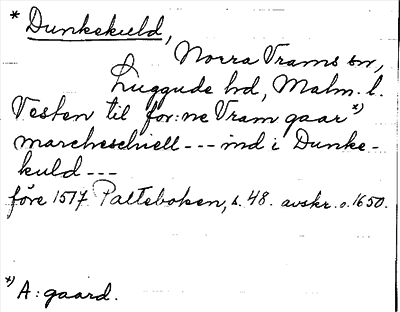 * Dunkekuld,
Norra Vrams sn,
Luggude hd, Malm. l.
Vesten til for:ne Vram gaar x)
marcheschiell --- ind i Dunke-
kuld ---
före 1517 Palteboken, s. 48. avskr. o. 1650.
x) A: gaard.